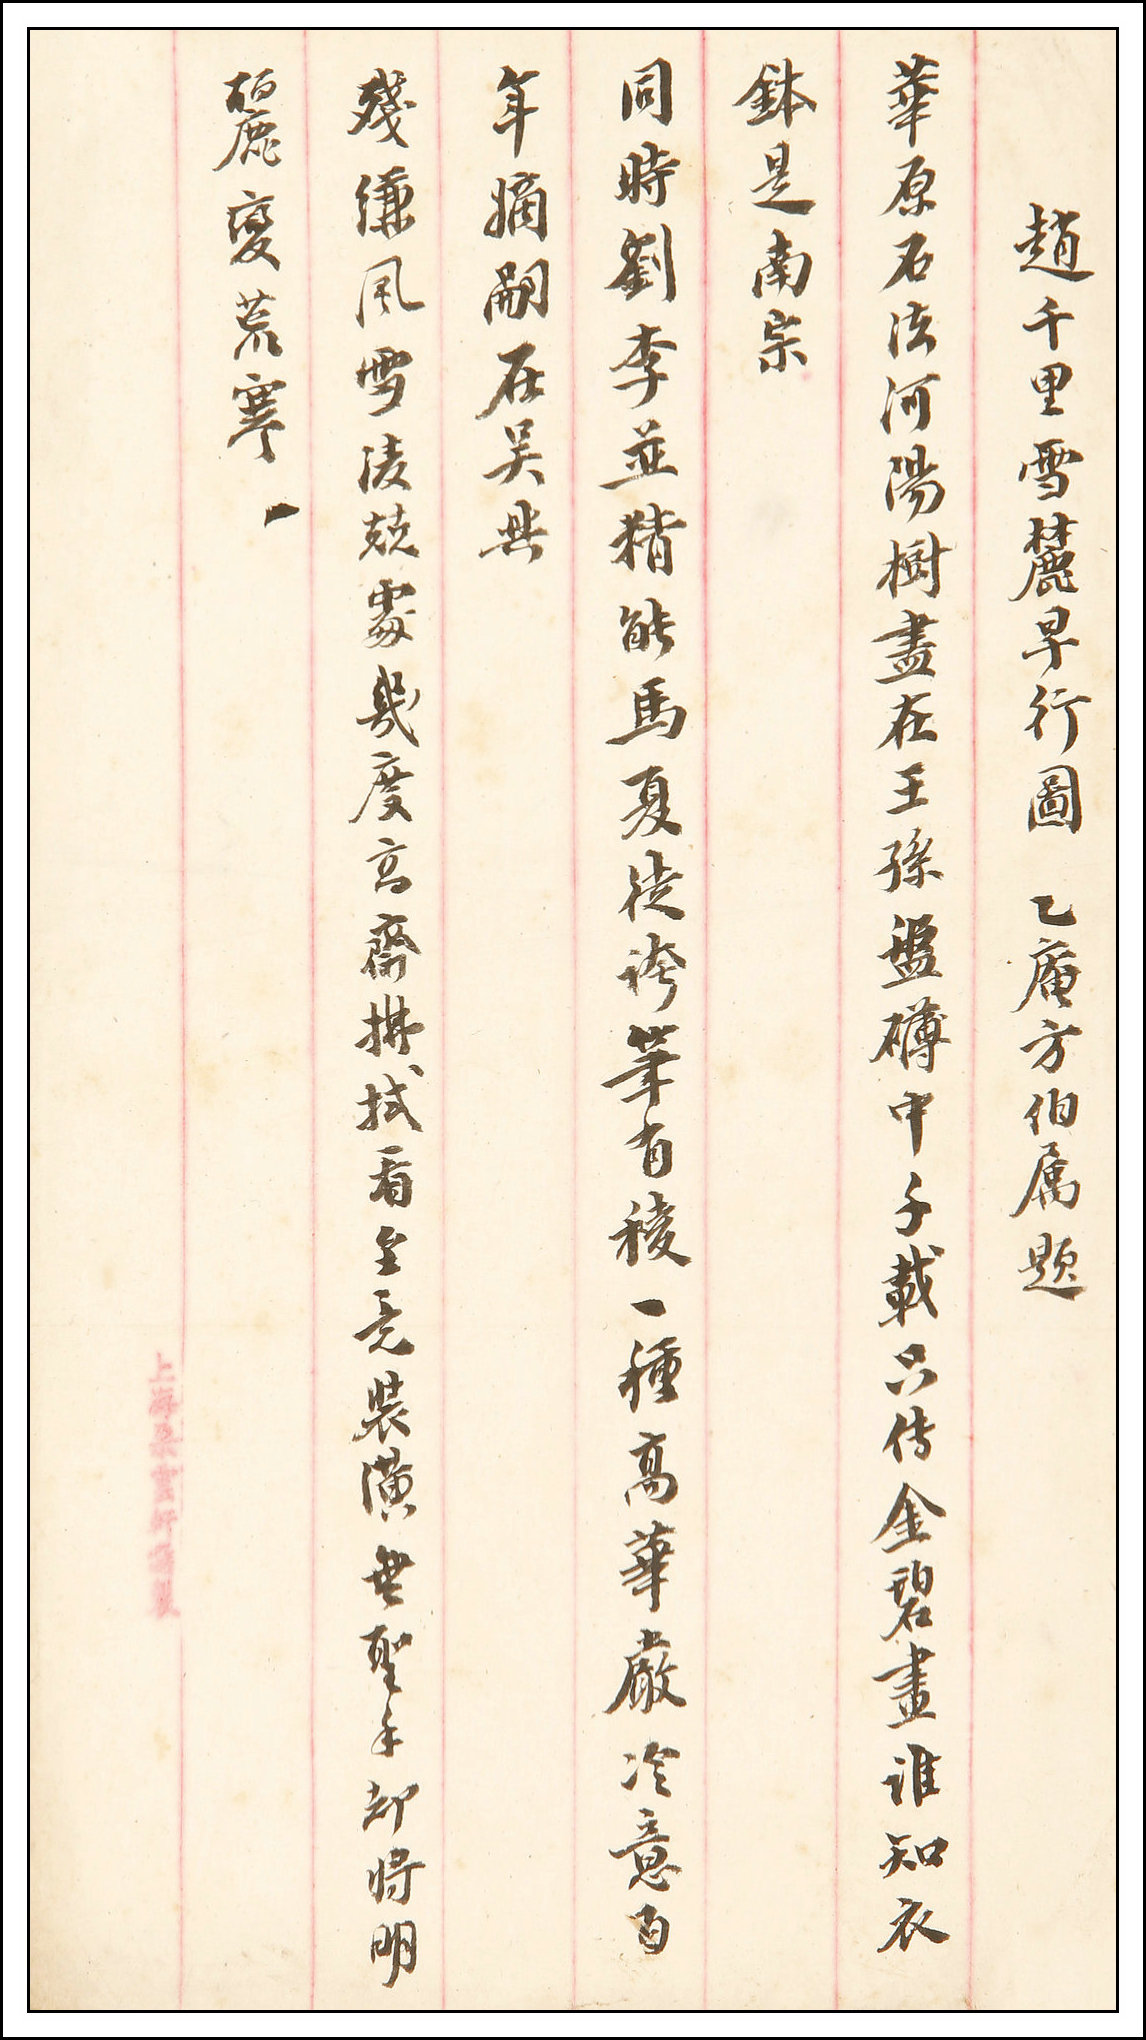 趙千里雪麓早行圖　乙庵方伯属题
華原石法河陽樹盡在王孫盤礴中千載只传金碧畫谁知衣
鉢是南宗
同時劉李並精能馬夏徒誇筆有稜一種高華嚴冷意百
年嫡嗣在吴興
殘縑風雪淩兢處幾度高齋拂拭看至竟裝潢無聖手却将明
麗變荒寒
上海朵雲軒